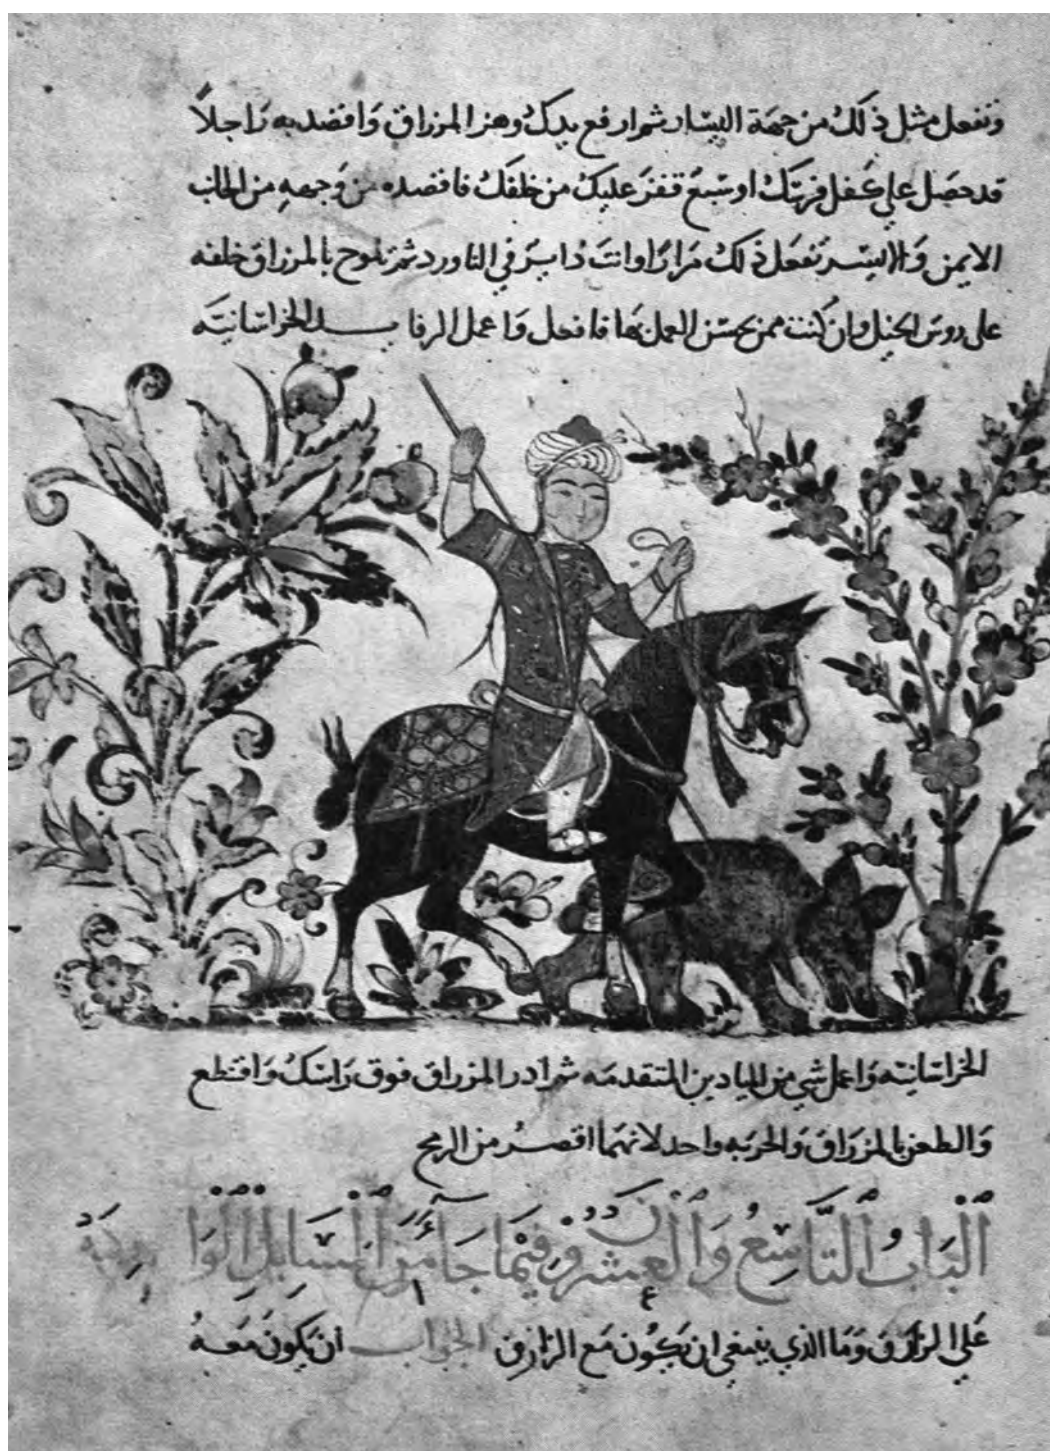 وتفعل مثل ذلك من جهة اليسار ثم ارفع يدك وهز المزراق واقصد به راجلا
قد حصل على كفل فرسك او سبع قفز عليك من خلفك فاقصده من وجهه من الجانب
الايمن والايسر تفعل ذلك مرارا وانت داير في الناورد ثم تلوح بالمزراق خلفه
على روس الخيل وان كنت ممن يحسن العمل بها فافعل واعمل الرفا يد الخراسانية
الخراسانية واعمل شي من الميادين المتقدمه ثم ادر المزراق فوق راسك واقطع
والطعن بالمزراق والحربه واحد لانهما اقصر من الرمح
الْبَابُ التَّاسِعُ وَالْعِشْرُونَ فِيمَا جَاءَ مِنَ الْمَسَايِلِ الْوَارِدَة
على الزراق وما الذي ينبغي ان يكون مع الزارق الجواب ان يكون معه